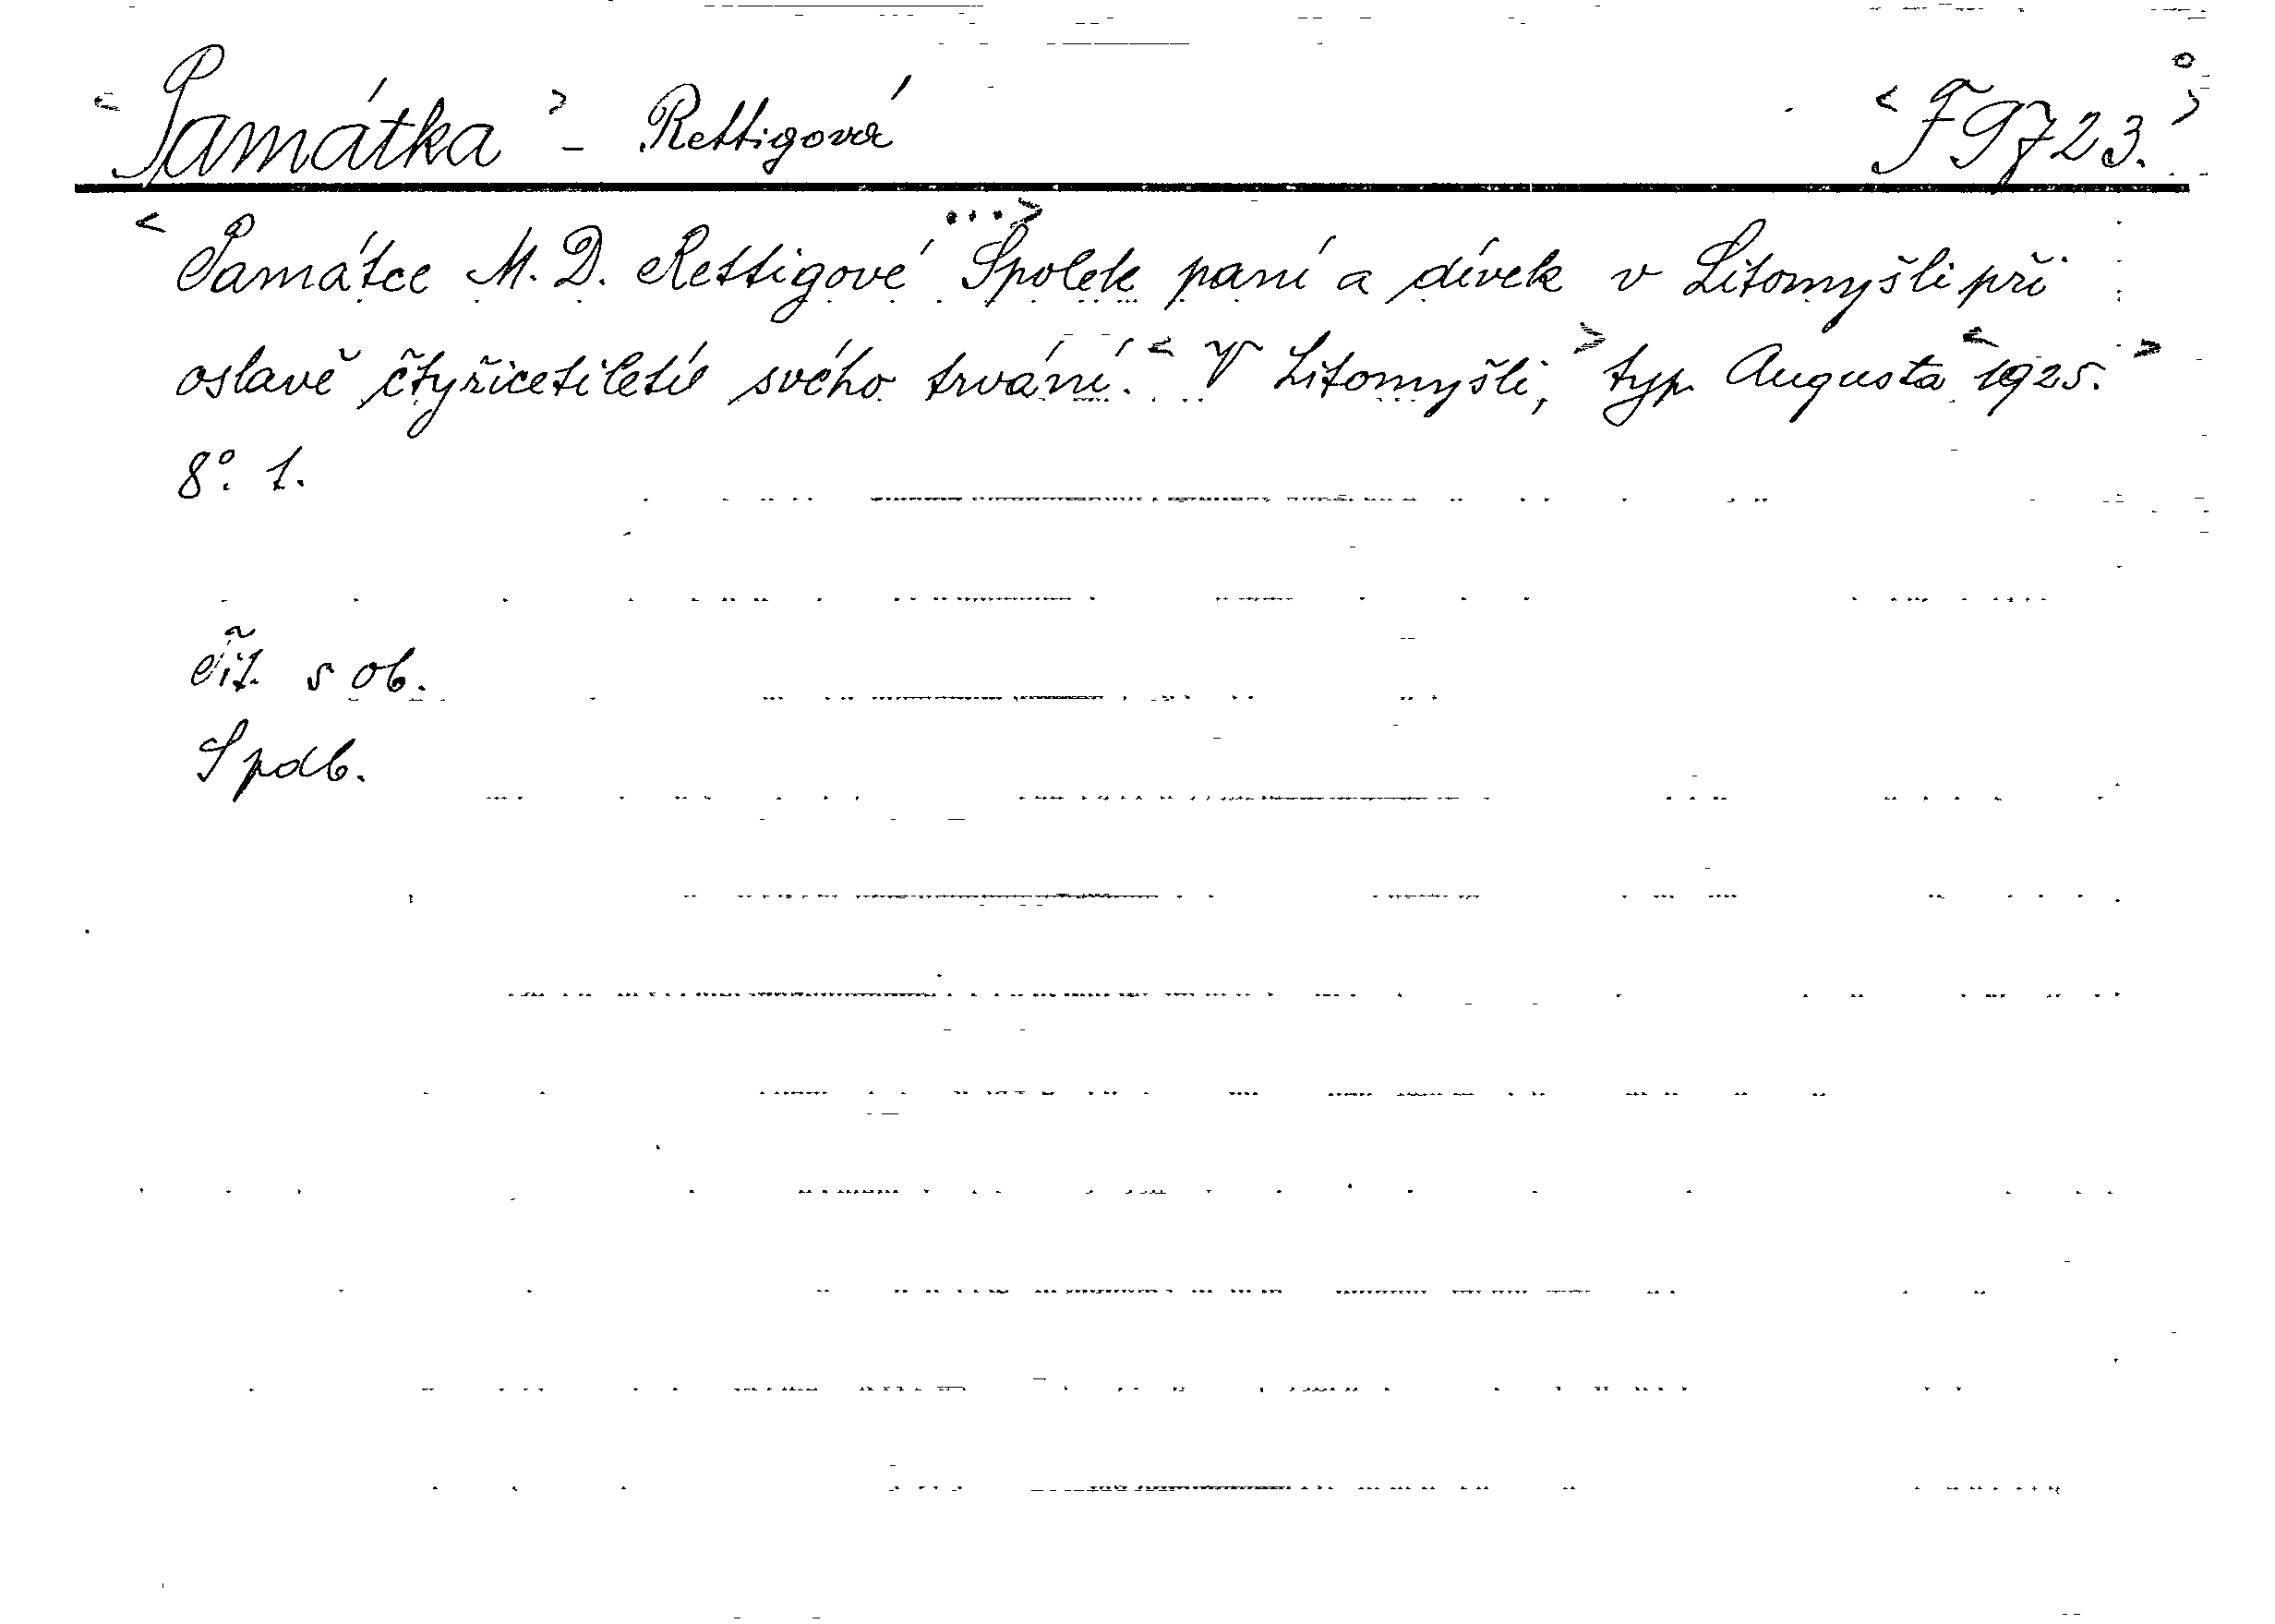 <Památka> - Rettigová <F 9723.>
<Památce M. D. Rettigové ...> Spolek paní a dívek v Litomyšli při
oslavě čtyřicetiletí svého trvání. <V Litomyšli,> typ. Augusta <1925.>
8°. 1.
s ob.
Spdb.